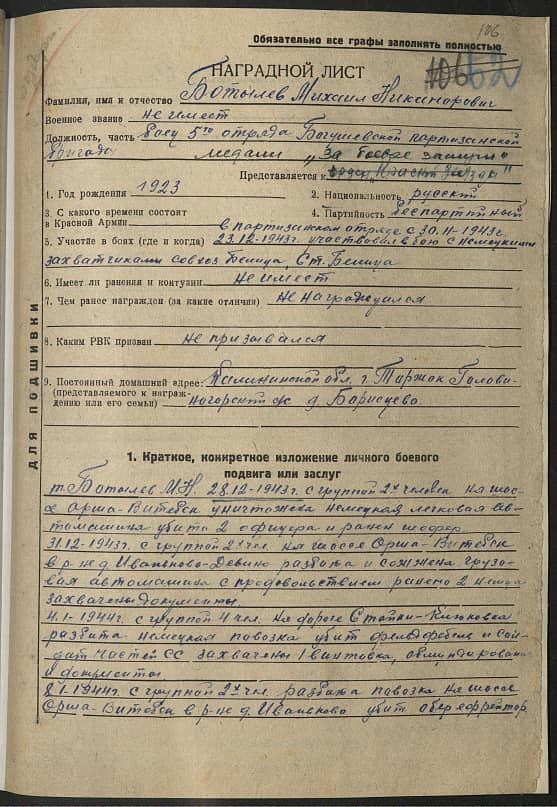 106
Обязательно все графы заполнять полностью
НАГРАДНОЙ ЛИСТ
106 62
Фамилия, имя и отчество Ботылев Михаил Никанорович
Военное звание не имеет
Должность, часть боец 5го отряда Богушевской партизанской
бригады медали „За боевые заслуги"
Представляется к
1. Год рождения 1923 2. Национальность русский
3. С какого времени состоит 4. Партийность беспартийный
в Красной Армии в партизанском отряде с 30.11-1943г.
5. Участие в боях (где и когда) 23.12-1943г. участвовал в бою с немецкими
захватчиками совхоз Белица, ст. Белица
6. Имеет ли ранения и контузии не имеет
7. Чем ранее награжден (за какие отличия) не награждался
8. Каким РВК призван не призывался
9. Постоянный домашний адрес: Калининская обл. г. Таржок
(представляемого к награж-
дению или его семьи) д. Борисцево
ДЛЯ ПОДШИВКИ
1. Краткое, конкретное изложение личного боевого
подвига или заслуг
т. Ботылев М.Н. 28.12-1943г. с группой 2х человек на шос-
се Орша-Витебск уничтожена немецкая легковая ав-
томашина убито 2 офицера и ранен шофер
31.12-1943г. с группой 2х чел. на шоссе Орша-Витебск
в р-не д. Иваньково-Девино разбита и сожжена грузо-
вая автомашина с продовольствием ранено 2 немца
захвачены документы.
4.1-1944г. с группой 4 чел. на дороге Стайки-
разбита немецкая повозка убит фельдфебель и сол-
дат частей СС захвачены 1 винтовка, обмундирован
и документы
8.1-1944г. с группой 2х чел. разбита повозка на шоссе
Орша-Витебск в р-не д. Иваньково убит обер ефрейтор